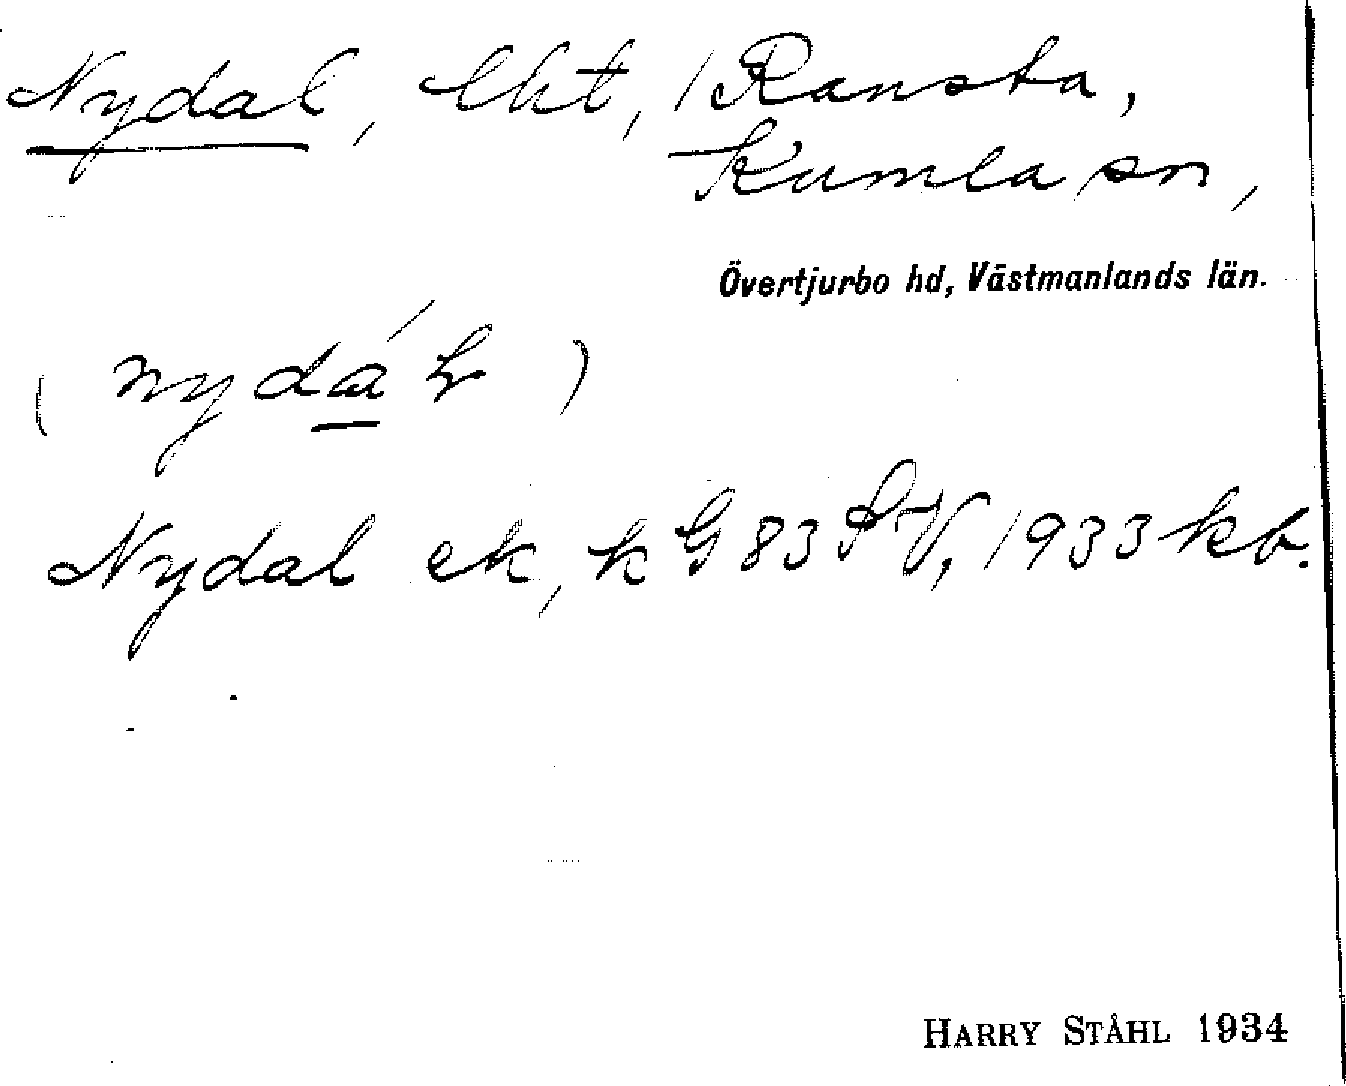 Nydal, lht, / Ransta,
Kumla sn,
Övertjurbo hd, Västmanlands län.
( nydá̲ )
Nydal ek, k G 83 SV, 1933 kb.
HARRY STÅHL 1934